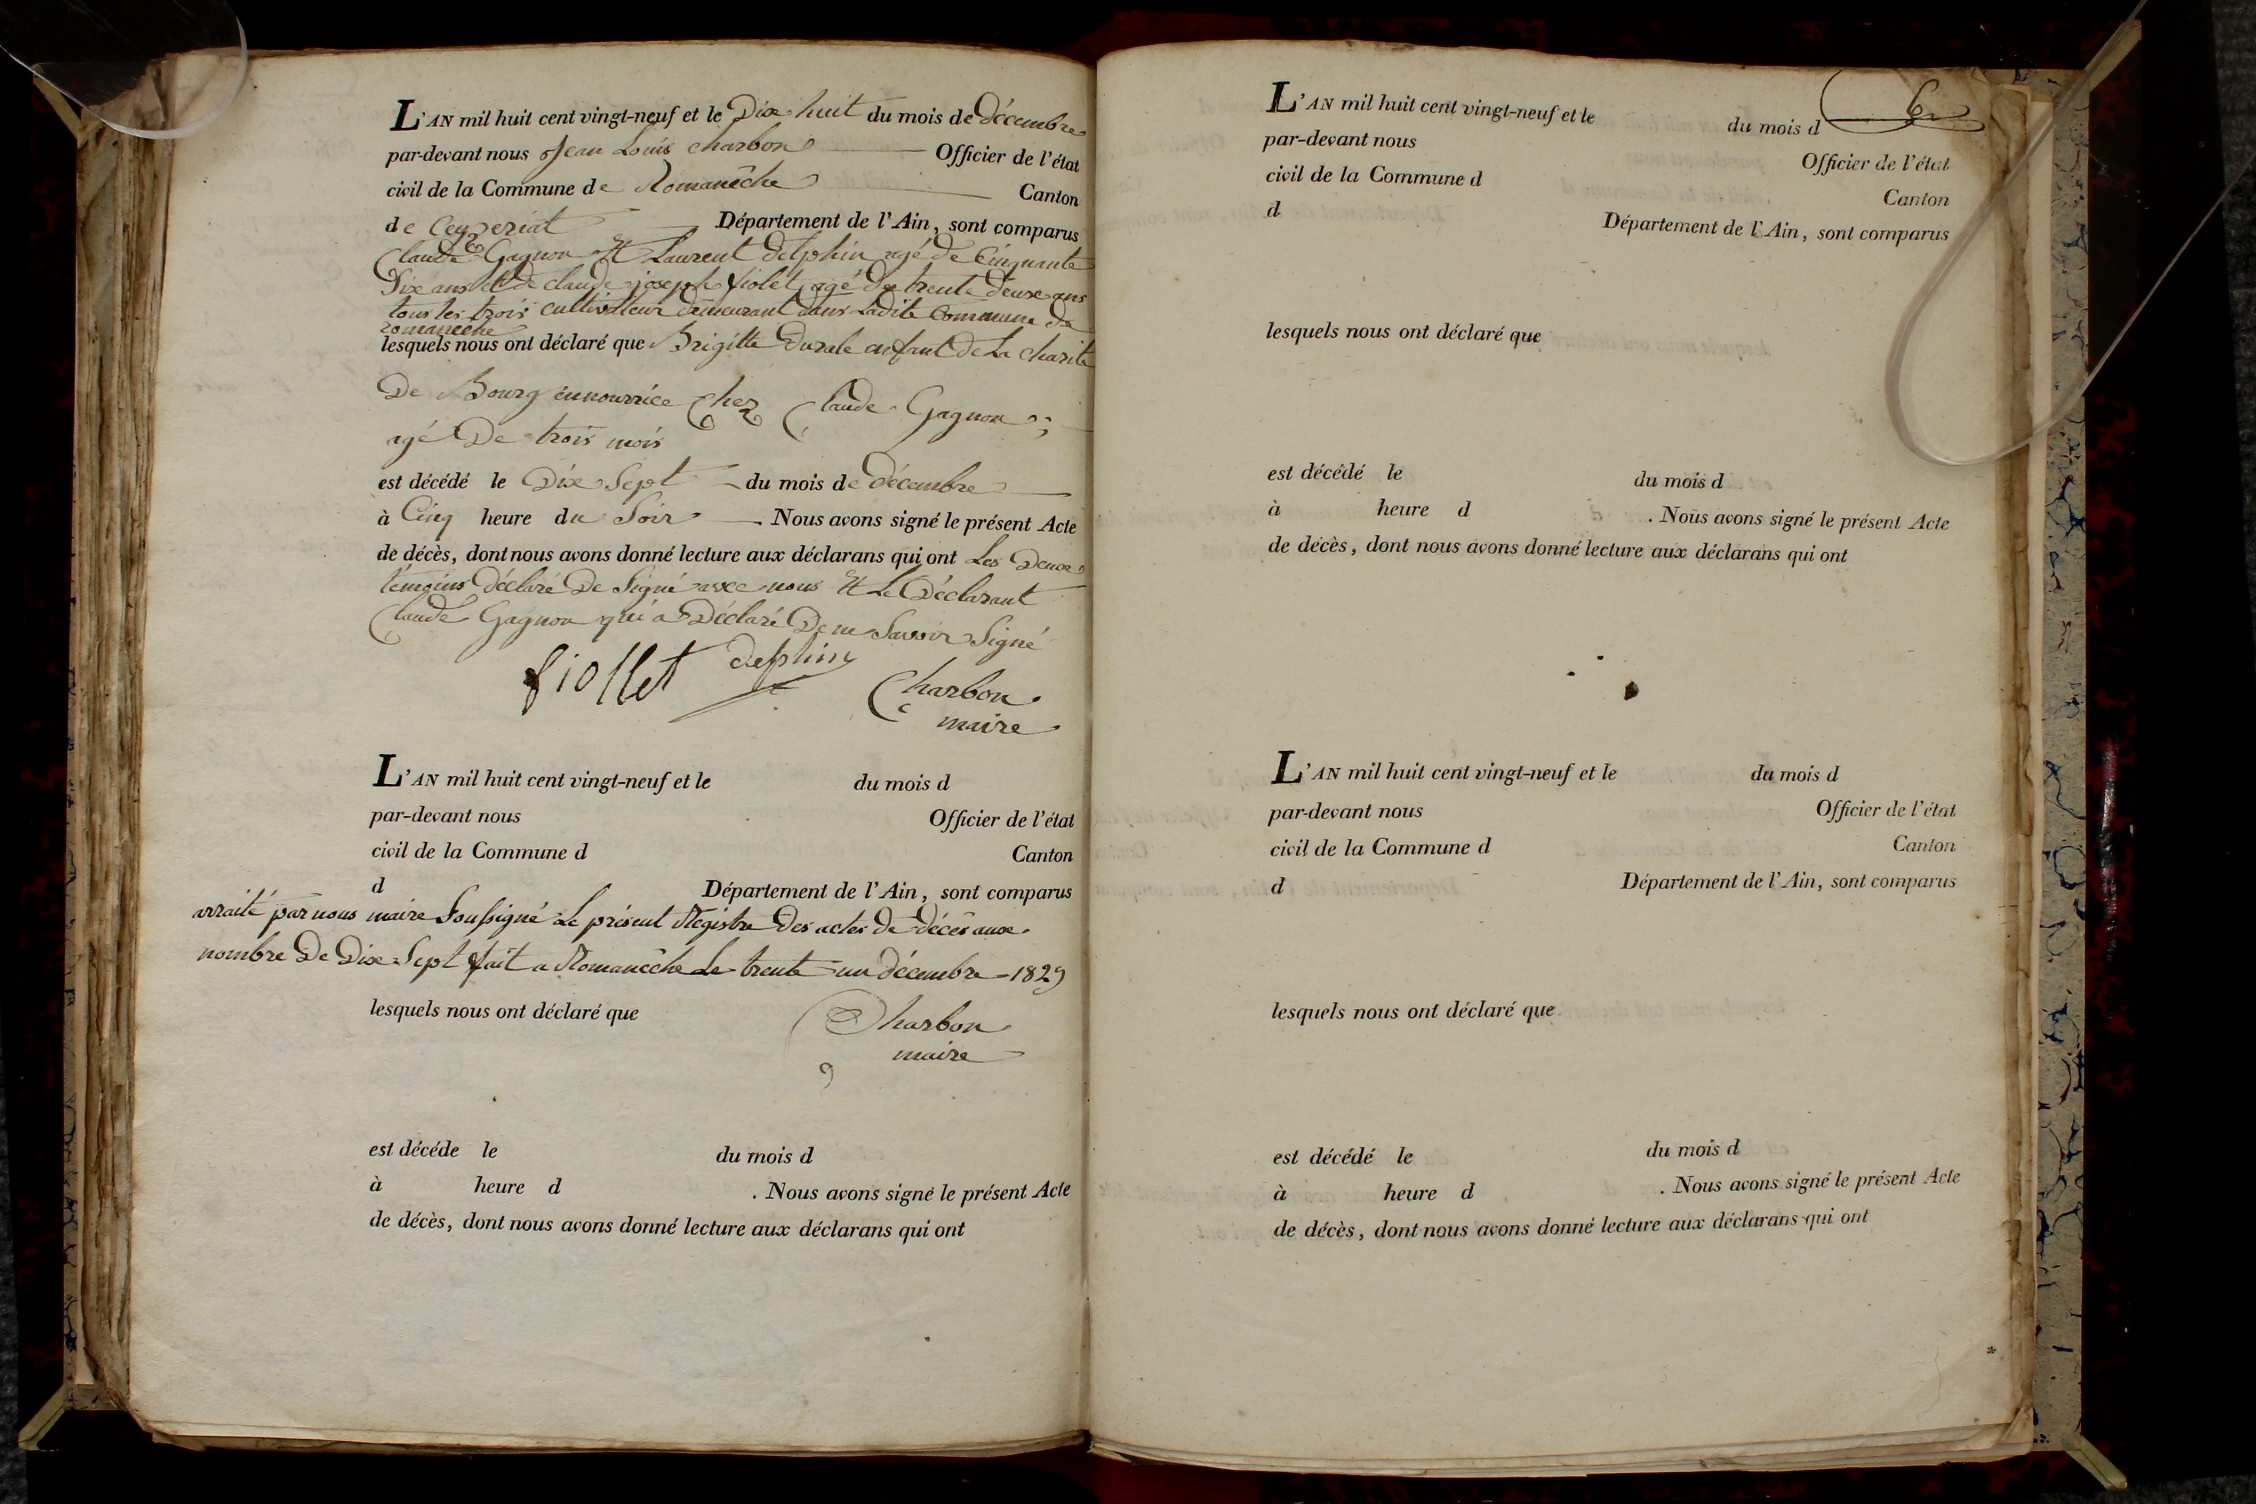 L'AN mil huit cent vingt-neuf et le Dix huit du mois de décembre
par-devant nous Jean Louis Charbon Officier de l'état
civil de la Commune de Romanêche Canton
de Ceyzeriat Département de l'Ain, sont comparus
Claude Gagnon et Laurent Delphin agé de Cinquante
Six ans et de claude joseph fiolet agé de trente deux ans
tous les trois cultivateur demeurant dans ladite Commune de
romanêche
lesquels nous ont déclaré que Brigitte enfant de La charité
De Bourg ennourrice Chez Claude Gagnon
agé De trois mois
est décédé le Dix Sept du mois de décembre
à Cinq heure du Soir . Nous avons signé le présent Acte
de décès, dont nous avons donné lecture aux déclarans qui ont Les Deux
témoins Déclaré De Signé avec nous Et Le Déclarant
Claude Gagnon qui a Déclaré De ne Savoir Signé
fiollet delphin Charbon
maire
L'AN mil huit cent vingt-neuf et le du mois d
par-devant nous Officier de l'état
civil de la Commune d Canton
d Département de l'Ain, sont comparus
arraité par nous maire Soussigné Le présent Régistre Des actes De décès aux
nombre De Dix Sept fait a Romanêche Le trente un décembre 1829
lesquels nous ont déclaré que Charbon
maire
est décéde le du mois d
à heure d . Nous avons signé le présent Acte
de décès, dont nous avons donné lecture aux déclarans qui ont
6
L'AN mil huit cent vingt-neuf et le du mois d
par-devant nous Officier de l'état
civil de la Commune d Canton
d Département de l'Ain, sont comparus
lesquels nous ont déclaré que
est décédé le du mois d
à heure d . Nous avons signé le présent Acte
de décès, dont nous avons donné lecture aux déclarans qui ont
L'AN mil huit cent vingt-neuf et le du mois d
par-devant nous Officier de l'état
civil de la Commune d Canton
d Département de l'Ain, sont comparus
lesquels nous ont déclaré que
est décédé le du mois d
à heure d . Nous avons signé le présent Acte
de décès, dont nous avons donné lecture aux déclarans qui ont